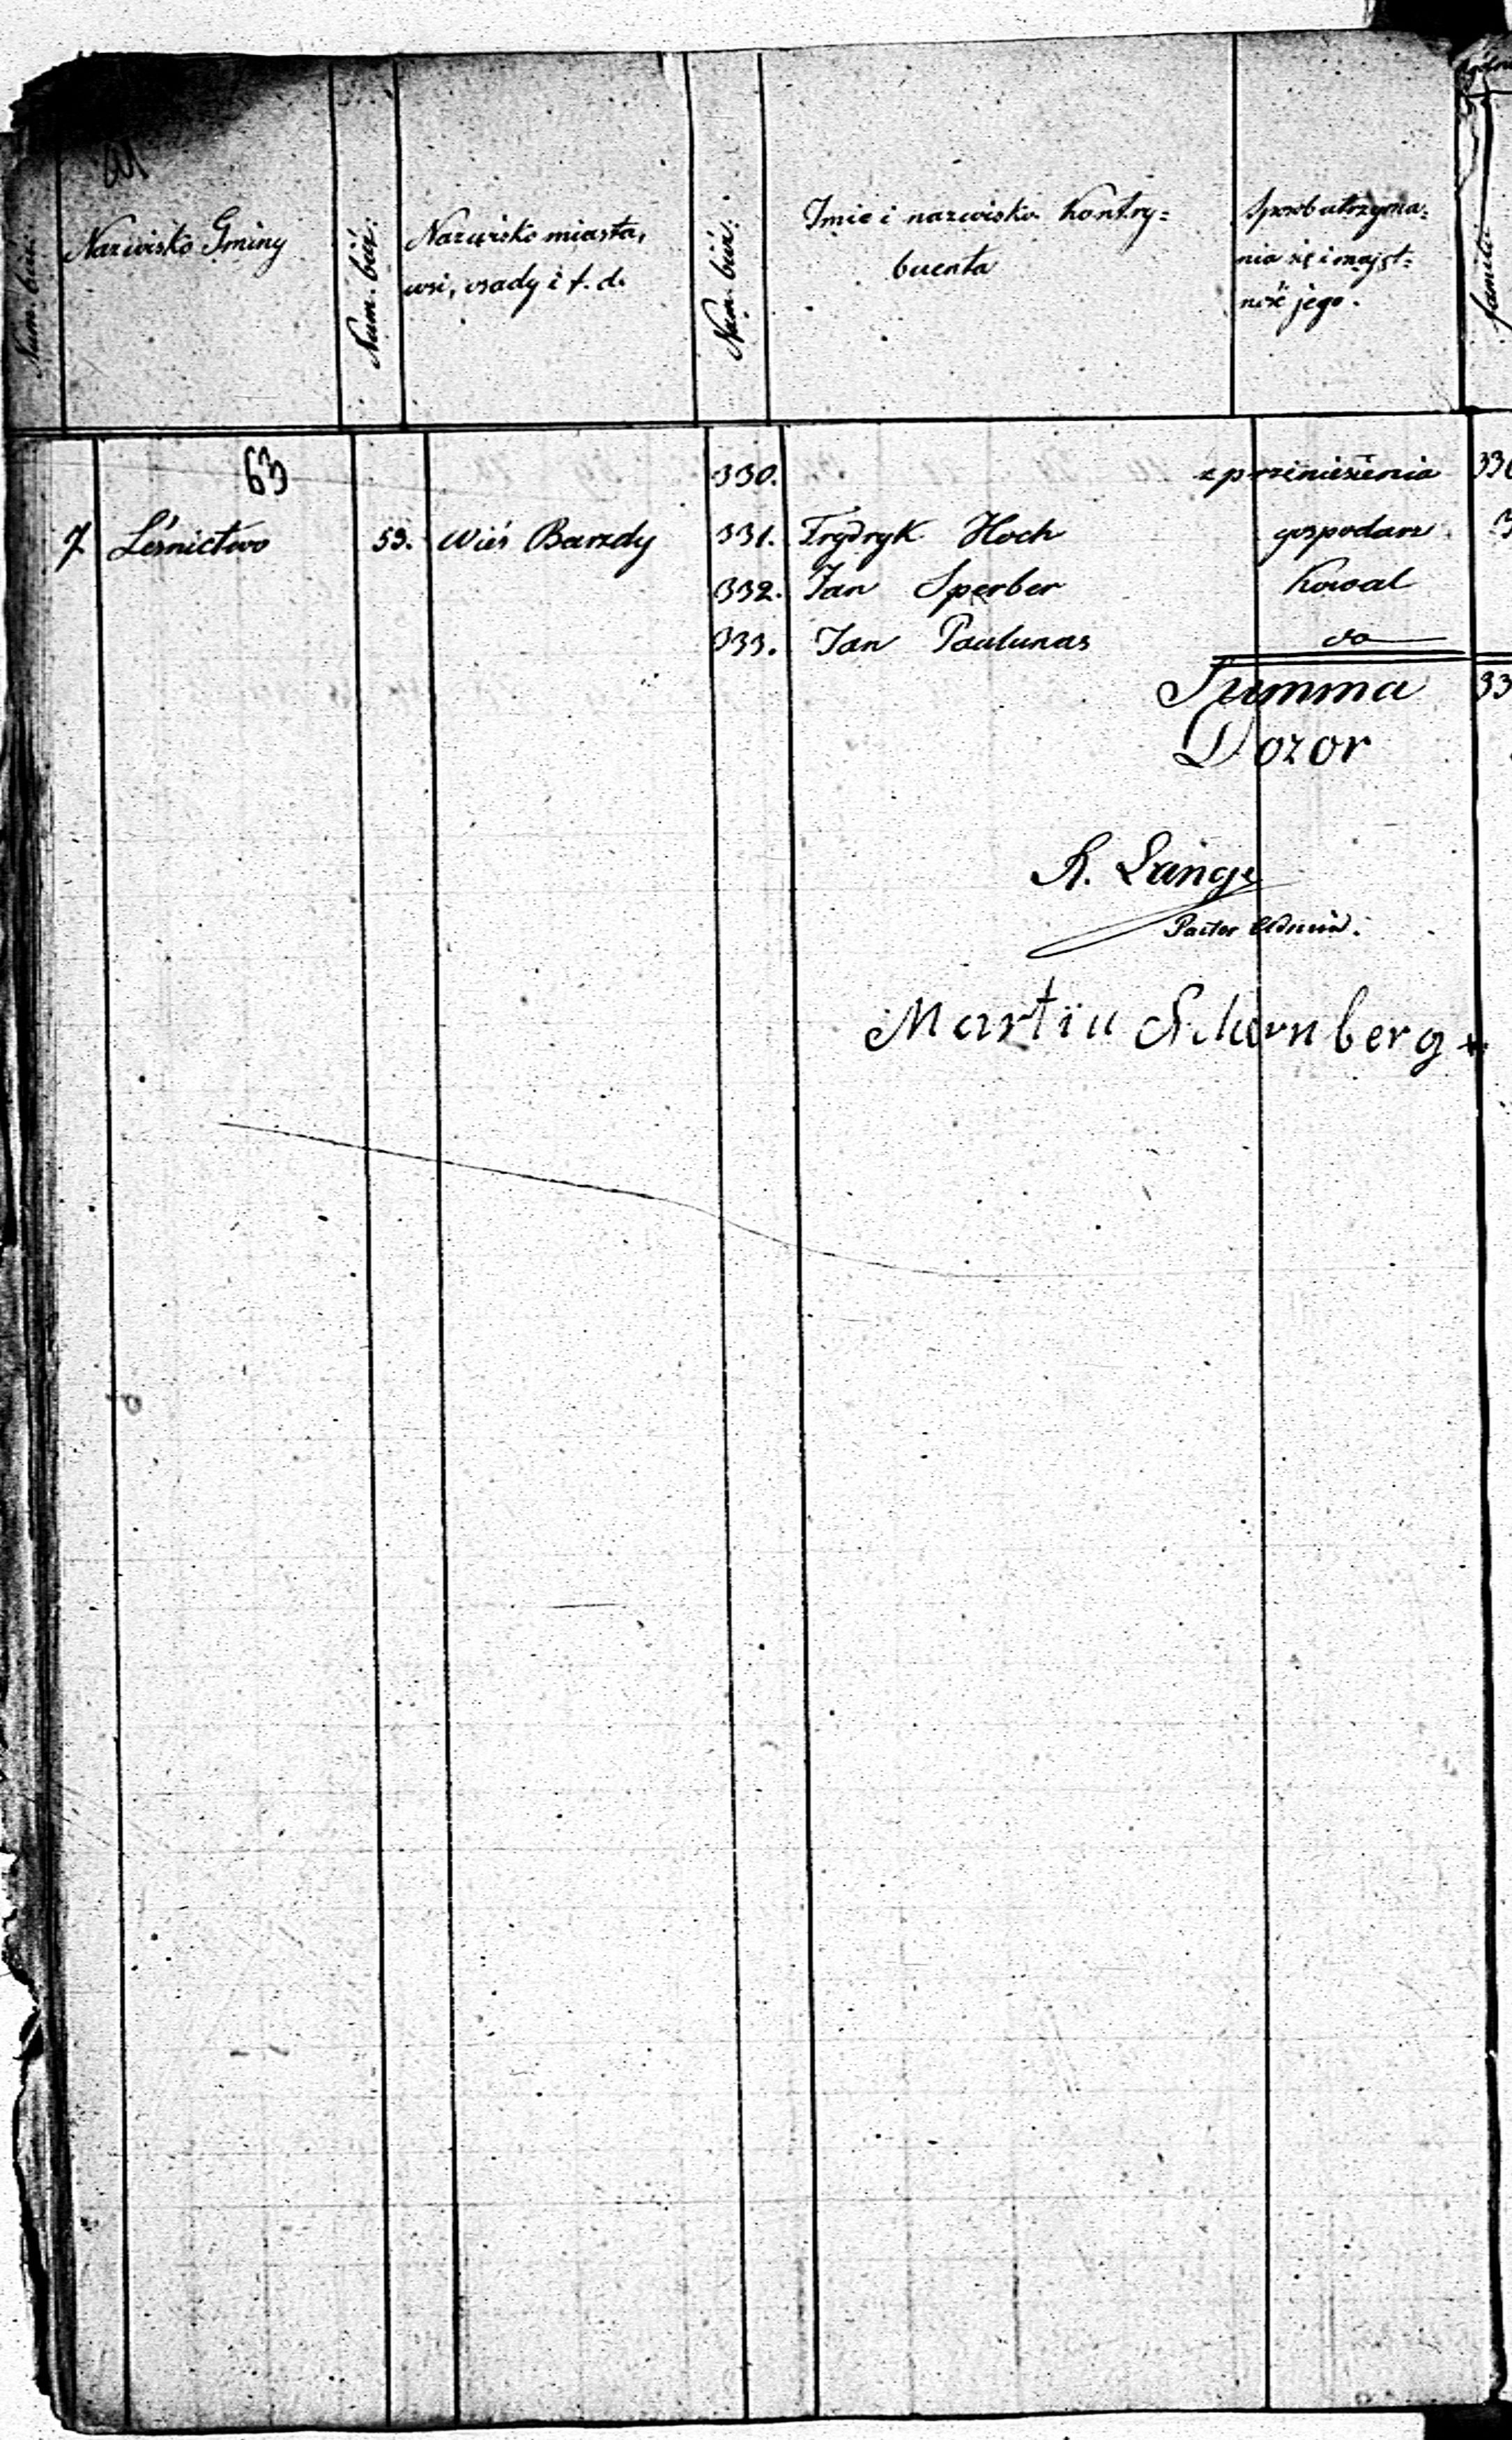 Num. bież:
Nazwisko Gminy
Num. bież:
Nazwisko miasta,
wsi, osady i t. d.
Num. bież:
Imie i nazwisko Kontry=
buenta
Sposób utrzyma=
nia się i majęt=
ność jego.
familii
63
330. z przeniesienia 330
7. Leśnictwo 59. Wieś Barzdy 331. Frydryk Hoch gospodarz
332. Jan Sperber Kowal
333. Jan Paulunas do
Summa 33
Dozor
Lange
Pastor Admin.
Martin Schernberg